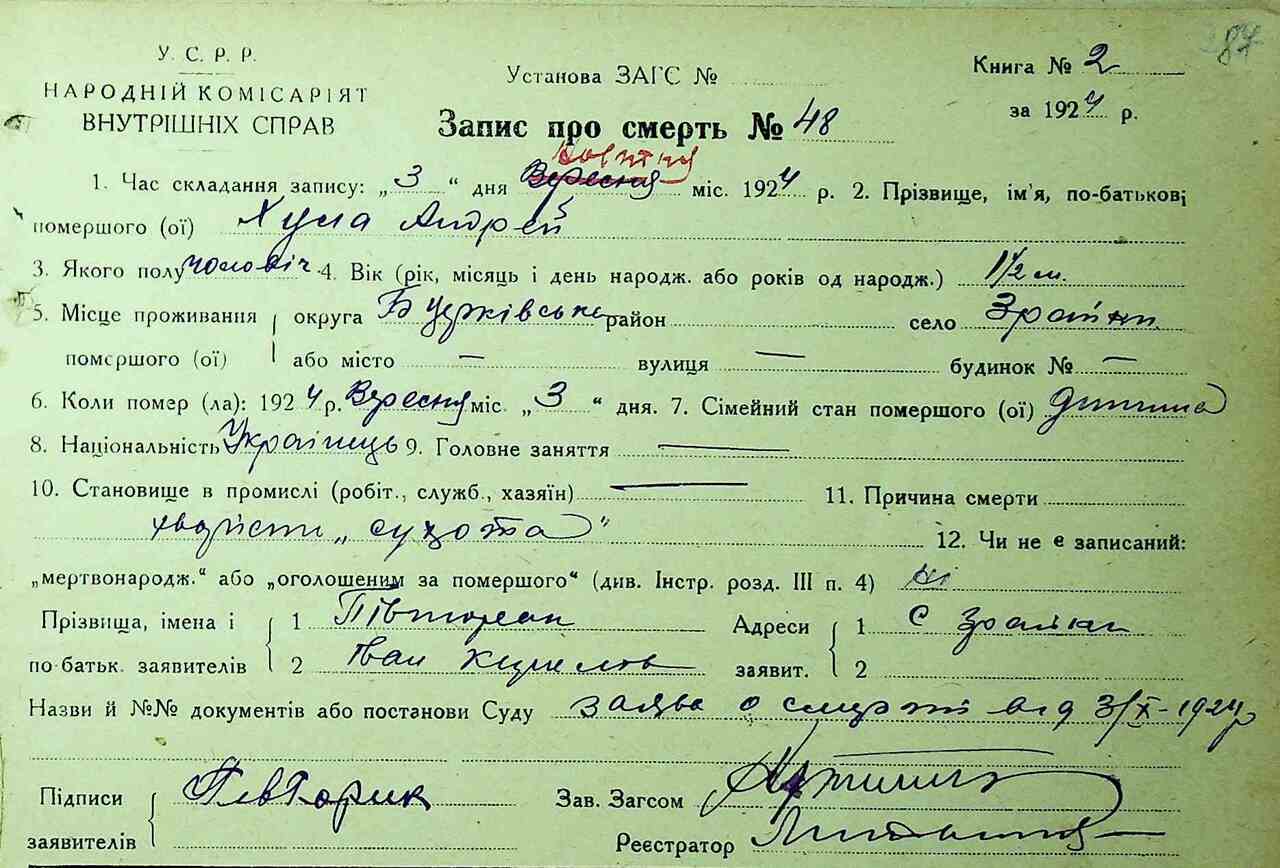 87
У. С. Р. Р.
НАРОДНІЙ КОМІСАРІЯТ
ВНУТРІШНІХ СПРАВ
Установа ЗАГС №
Книга № 2
за 1924 р.
Запис про смерть № 48
Жовтня
1. Час складання запису: „3“ дня Вересня міс. 1924 р. 2. Прізвище, ім'я, по-батькові
помершого (ої) Хула Андрей
3. Якого полу чоловіч 4. Вік (рік, місяць і день народж. або років од народж.) 1½ м.
5. Місце проживання округа Б Церківська район село Зрайки
помершого (ої) або місто — вулиця — будинок № —
6. Коли помер (ла): 1924 р. Вересня міс. „3“ дня. 7. Сімейний стан помершого (ої) дитина
8. Національність Українець 9. Головне заняття —
10. Становище в промислі (робіт., служб., хазяїн) — 11. Причина смерти
„сухота“ 12. Чи не є записаний:
„мертвонародж.“ або „оголошеним за помершого“ (див. Інстр. розд. III п. 4) ні
Прізвища, імена і 1 Півторак Адреси 1 с Зрайки
по батьк. заявителів 2 Іван заявит. 2
Назви й №№ документів або постанови Суду заява о смерті від 3/X-1924 р
Підписи Півторак Зав. Загсом
заявителів Реєстратор